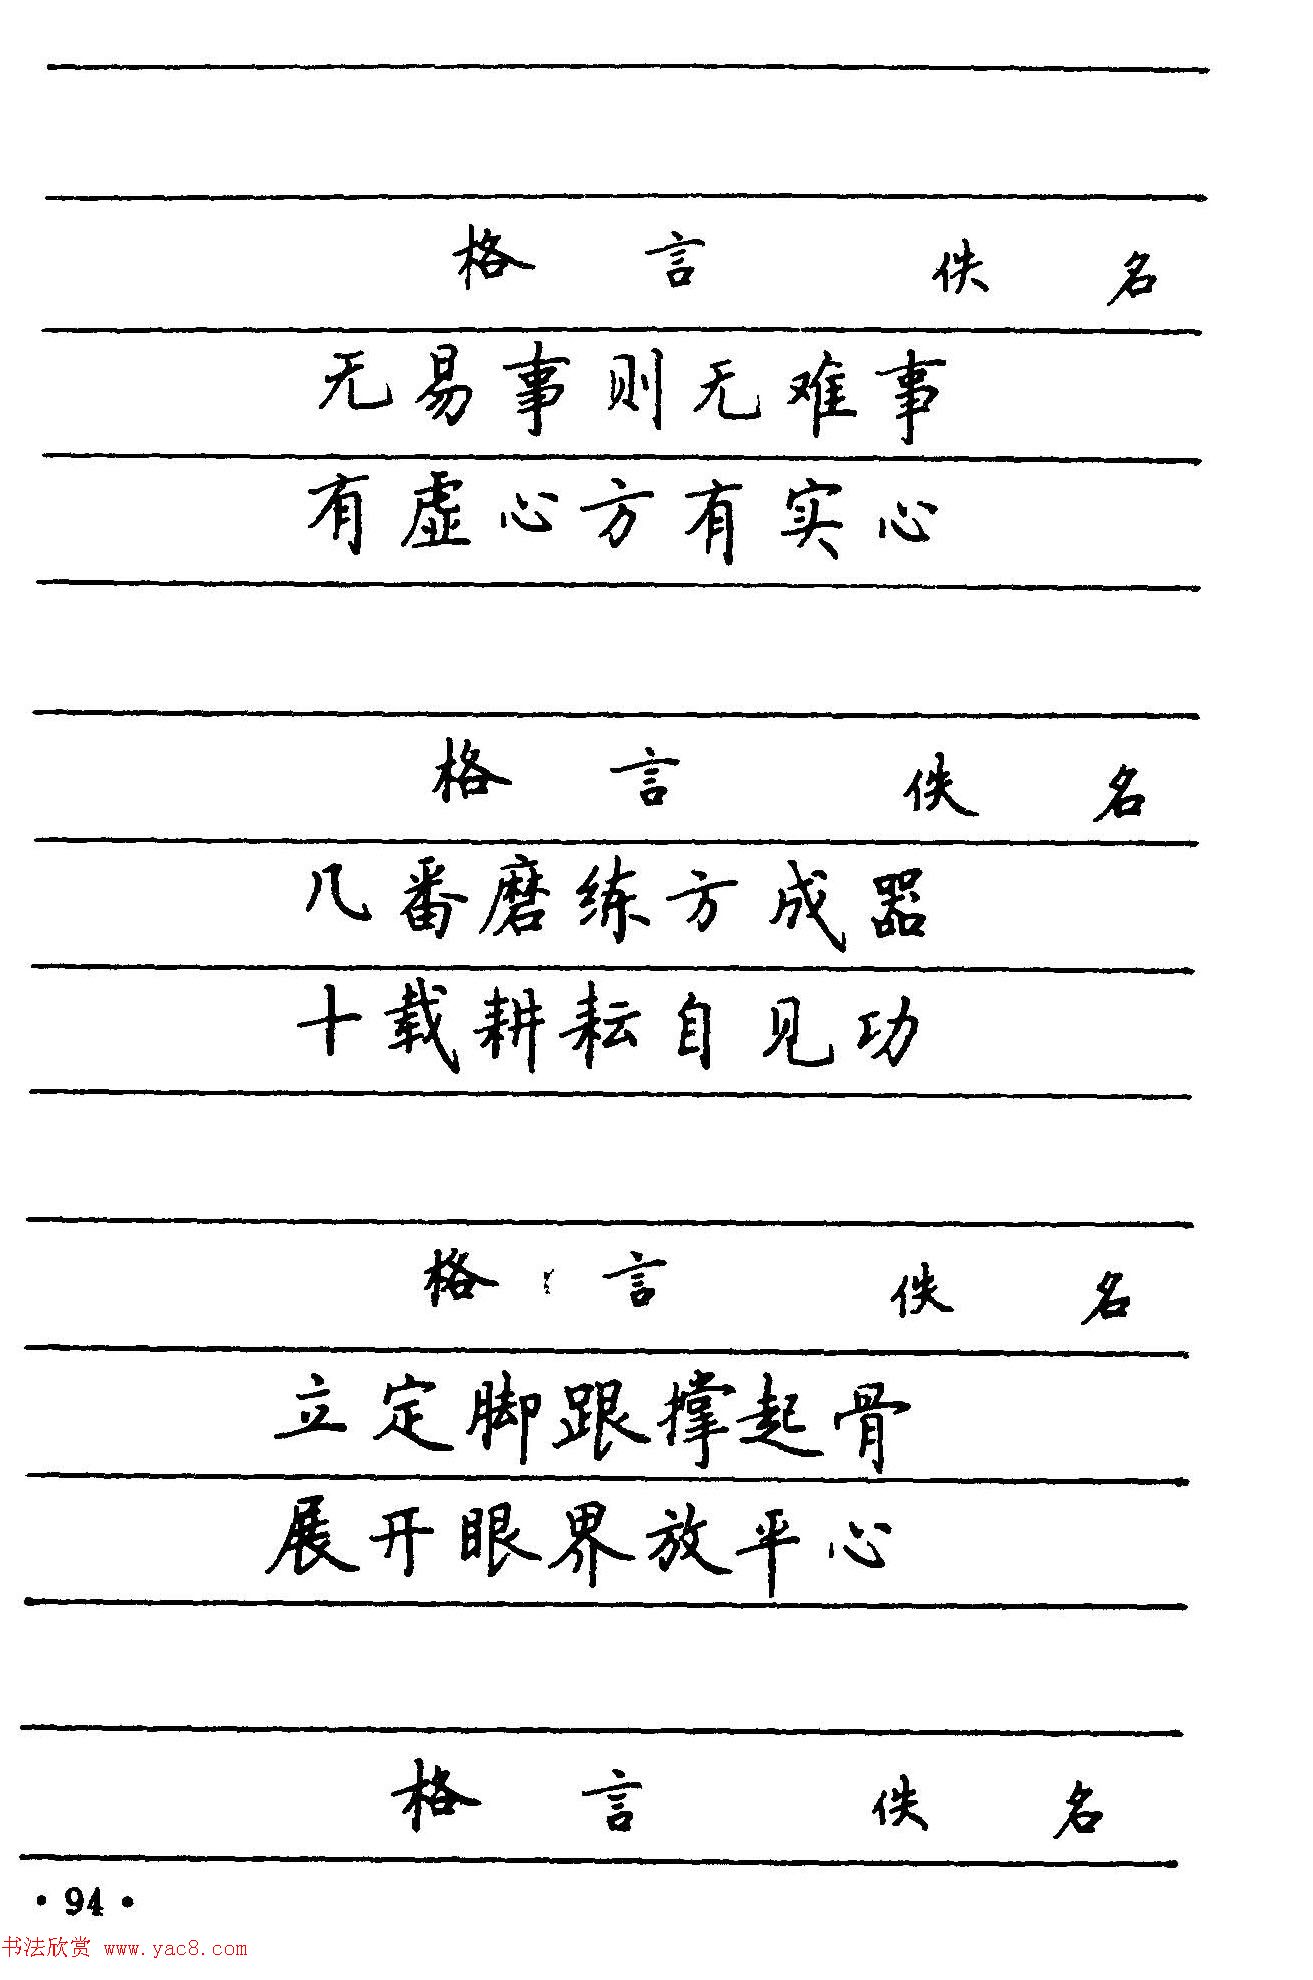 格言 佚名
无易事则无难事
有虚心方有实心
格言 佚名
几番磨练方成器
十载耕耘自见功
格言 佚名
立定脚跟撑起骨
展开眼界放平心
格言 佚名
·94·
书法欣赏 www.yac8.com